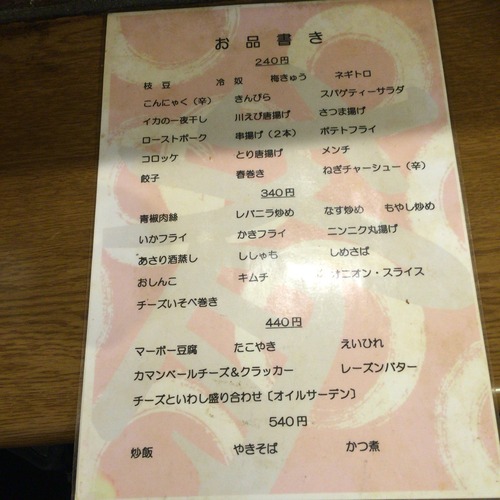 お品書き
240円
枝豆 冷奴 梅きゅう ネギトロ
こんにゃく（辛） きんぴら スパゲティーサラダ
イカの一夜干し 川えび唐揚げ さつま揚げ
ローストポーク 串揚げ（２本） ポテトフライ
コロッケ とり唐揚げ メンチ
餃子 春巻き ねぎチャーシュー（辛）
340円
青椒肉絲 レバニラ炒め なす炒め もやし炒め
いかフライ かきフライ ニンニク丸揚げ
あさり酒蒸し ししゃも しめさば
おしんこ キムチ オニオン・スライス
チーズいそべ巻き
440円
マーボー豆腐 たこやき えいひれ
カマンベールチーズ＆クラッカー レーズンバター
チーズといわし盛り合わせ〔オイルサーデン〕
540円
炒飯 やきそば かつ煮